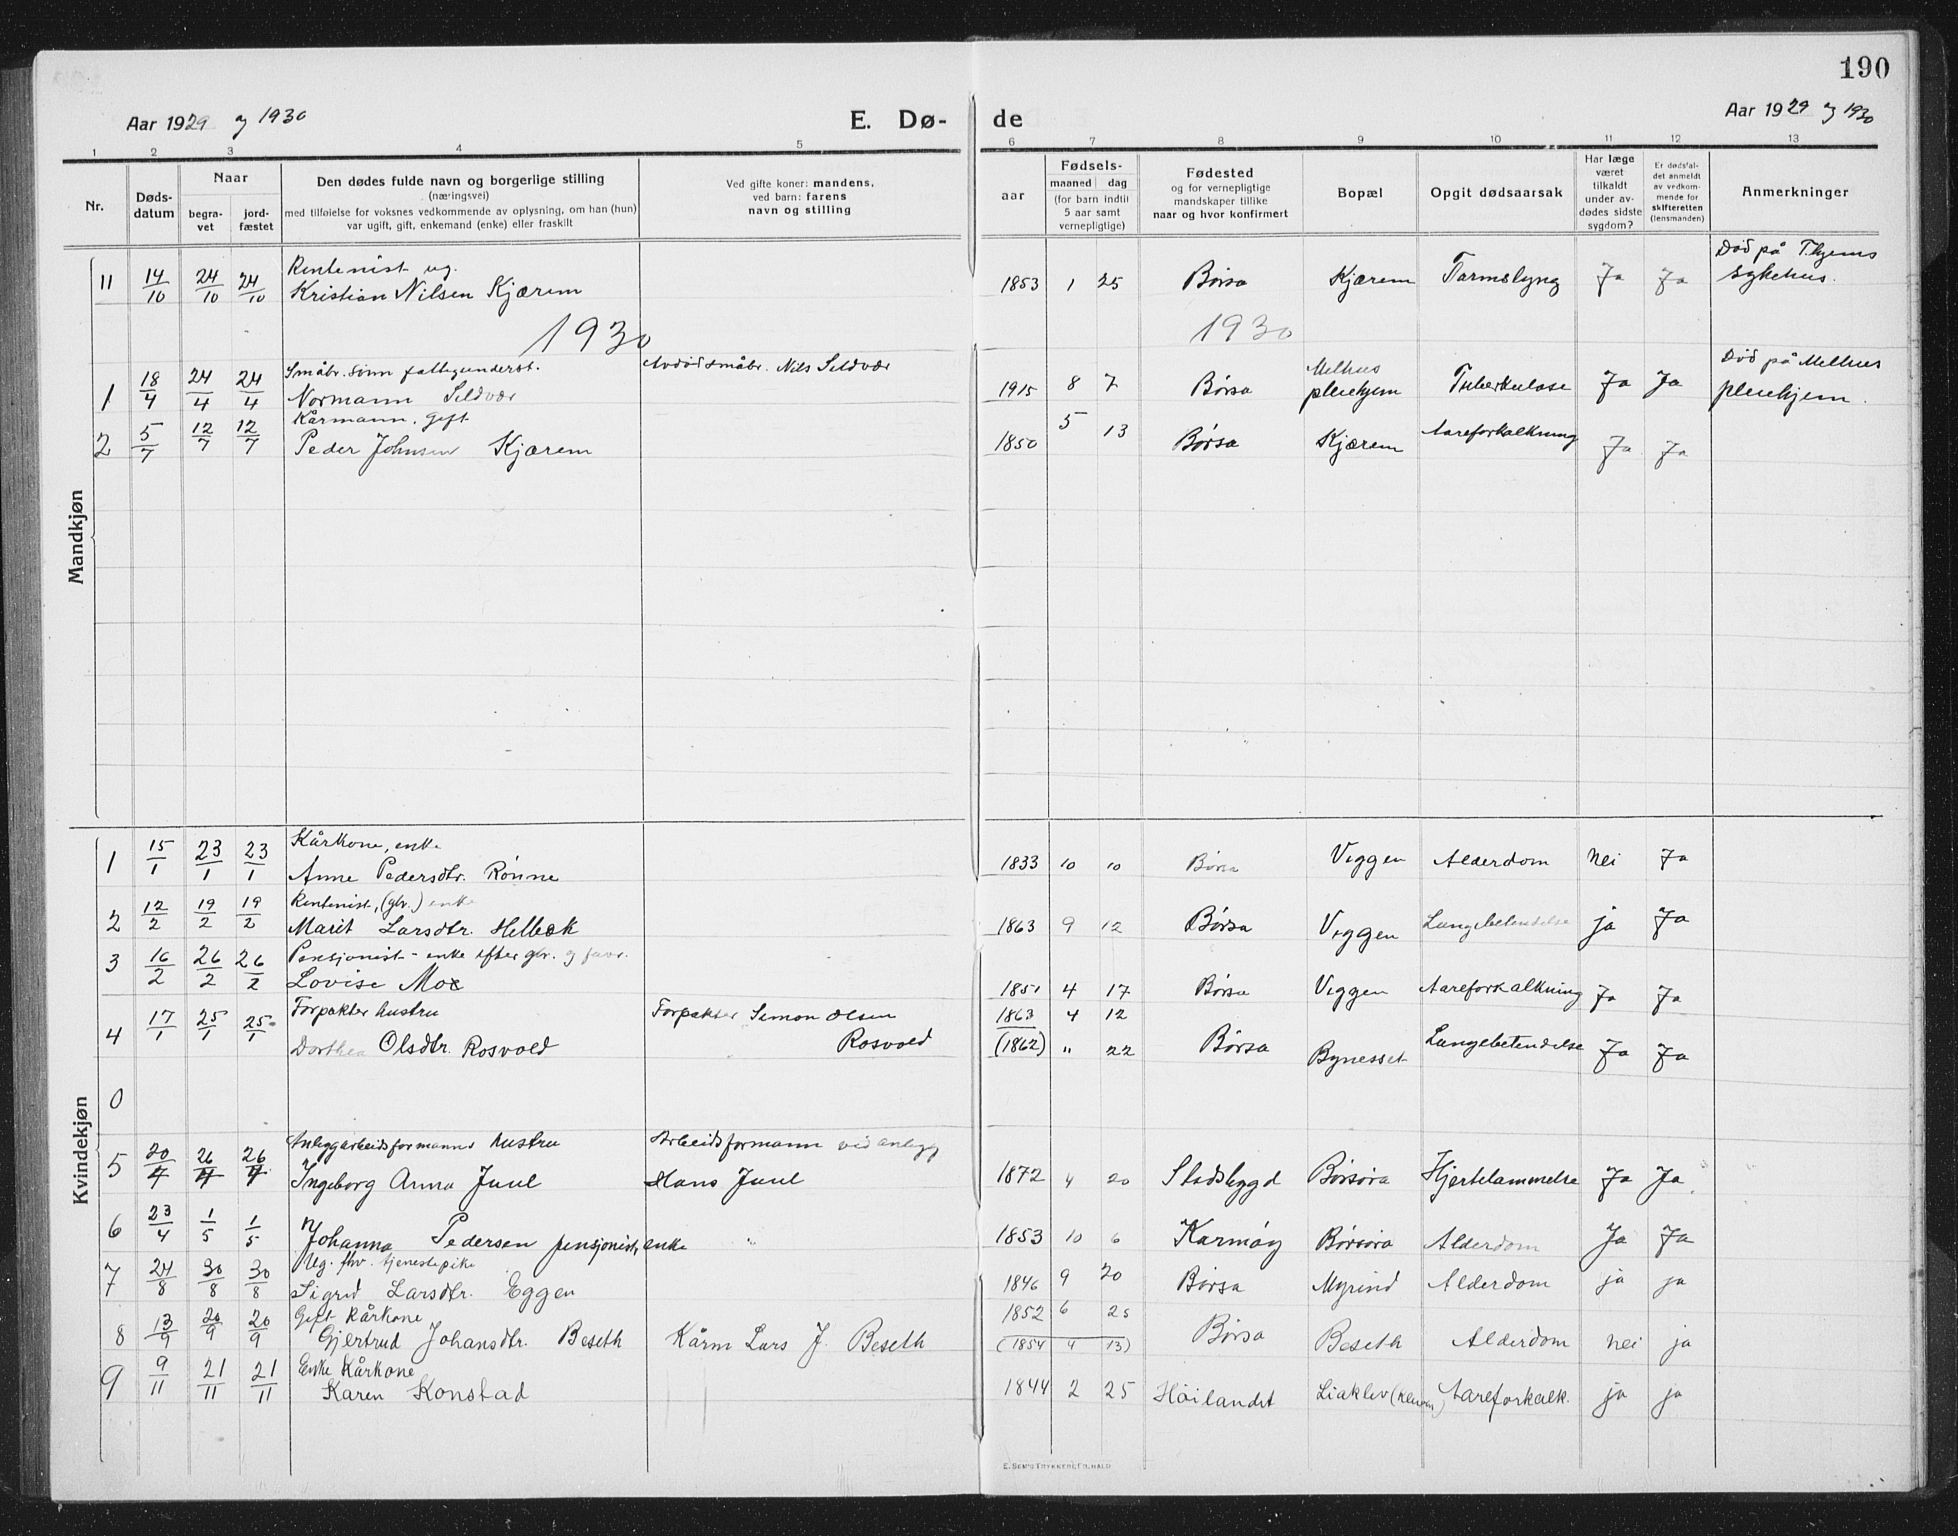 190
Aar 1929 og 1930 E. Dø- de Aar 1929 og 1930
1 2 3 4 5 6 7 8 9 10 11 12 13
Nr.
Døds-
datum
Naar
begra-
vet
jord-
fæstet
Den dødes fulde navn og borgerlige stilling
(næringsvei)
med tilføielse for voksnes vedkommende av oplysning, om han (hun)
var ugift, gift, enkemand (enke) eller fraskilt
Ved gifte koner: mandens,
ved barn: farens
navn og stilling
aar
Fødsels-
maaned dag
(for barn indtil
5 aar samt
vernepligtige)
Fødested
og for vernepligtige
mandskaper tillike
naar og hvor konfirmert
Bopæl
Opgit dødsaarsak
Har læge
været
tilkaldt
under av-
dødes sidste
sygdom?
Er dødsfal-
det anmeldt
av vedkom-
mende for
skifteretten
(lensmanden)
Anmerkninger
Mandkjøn
Rentenist ug. Død på T.hjems
11 14/10 24/10 24/10 Kristian Nilsen Kjærem 1853 1 25 Børsa Kjærem Tarmslyng Ja Ja sykehus.
1930 1930
Småbr. sønn fattigunderst. Avdød småbr. Nils Seldvær Melhus Død på Melhus
1 18/4 24/4 24/4 Normann Seldvær 1915 8 7 Børsa pleiehjem Tuberkulose Ja Ja pleiehjem.
Kårmann, gift
2 5/7 12/7 12/7 Peder Johnsen Kjærem 1850 5 13 Børsa Kjærem Aareforkalkning Ja Ja
Kvindekjøn
Kårkone, enke
1 15/1 23/1 23/1 Anne Pedersdtr. Rønne 1833 10 10 Børsa Viggen Alderdom nei Ja
Rentenist, (gbr.) enke
2 12/2 19/2 19/2 Marit Larsdtr. Helbæk 1863 9 12 Børsa Viggen Lungebetendelse ja Ja
Pensjonist - enke efter gbr. og
3 16/2 26/2 26/2 Lovise Moe 1851 4 17 Børsa Viggen Aareforkalkning Ja Ja
Forpakter hustru Forpakter Simon Olsen 1863 4 12
4 17/1 25/1 25/1 Dorthea Olsdtr. Rosvold Rosvold (1862) " 22 Børsa Bynesset Lungebetendelse Ja Ja
0
Anleggarbeidsformanns hustru Arbeidsformann ved anlegg
5 20/4 26/4 26/4 Ingeborg Anna Juul Hans Juul 1872 4 20 Stadsbygd Børsøra Hjertelammelse Ja Ja
6 23/4 1/5 1/5 Johanna Pedersen pensjonist, enke " 1853 10 6 Karmøy Børsøra Alderdom Ja Ja
Ug. fhv. tjenestepike
7 24/8 30/8 30/8 Sigrid Larsdtr. Eggen 1846 9 20 Børsa Myrind Alderdom ja ja
Gift kårkone 1852 6 25
8 13/9 20/9 20/9 Gjertrud Johansdtr. Beseth Kårm Lars J. Beseth (1854 4 13) Børsa Beseth Alderdom nei ja
Enke Kårkone
9 9/11 21/11 21/11 Karen Konstad 1844 2 25 Høilandet Liaklev Aareforkalk. ja ja
E. SEM'S TRYKKERI, FR.HALD